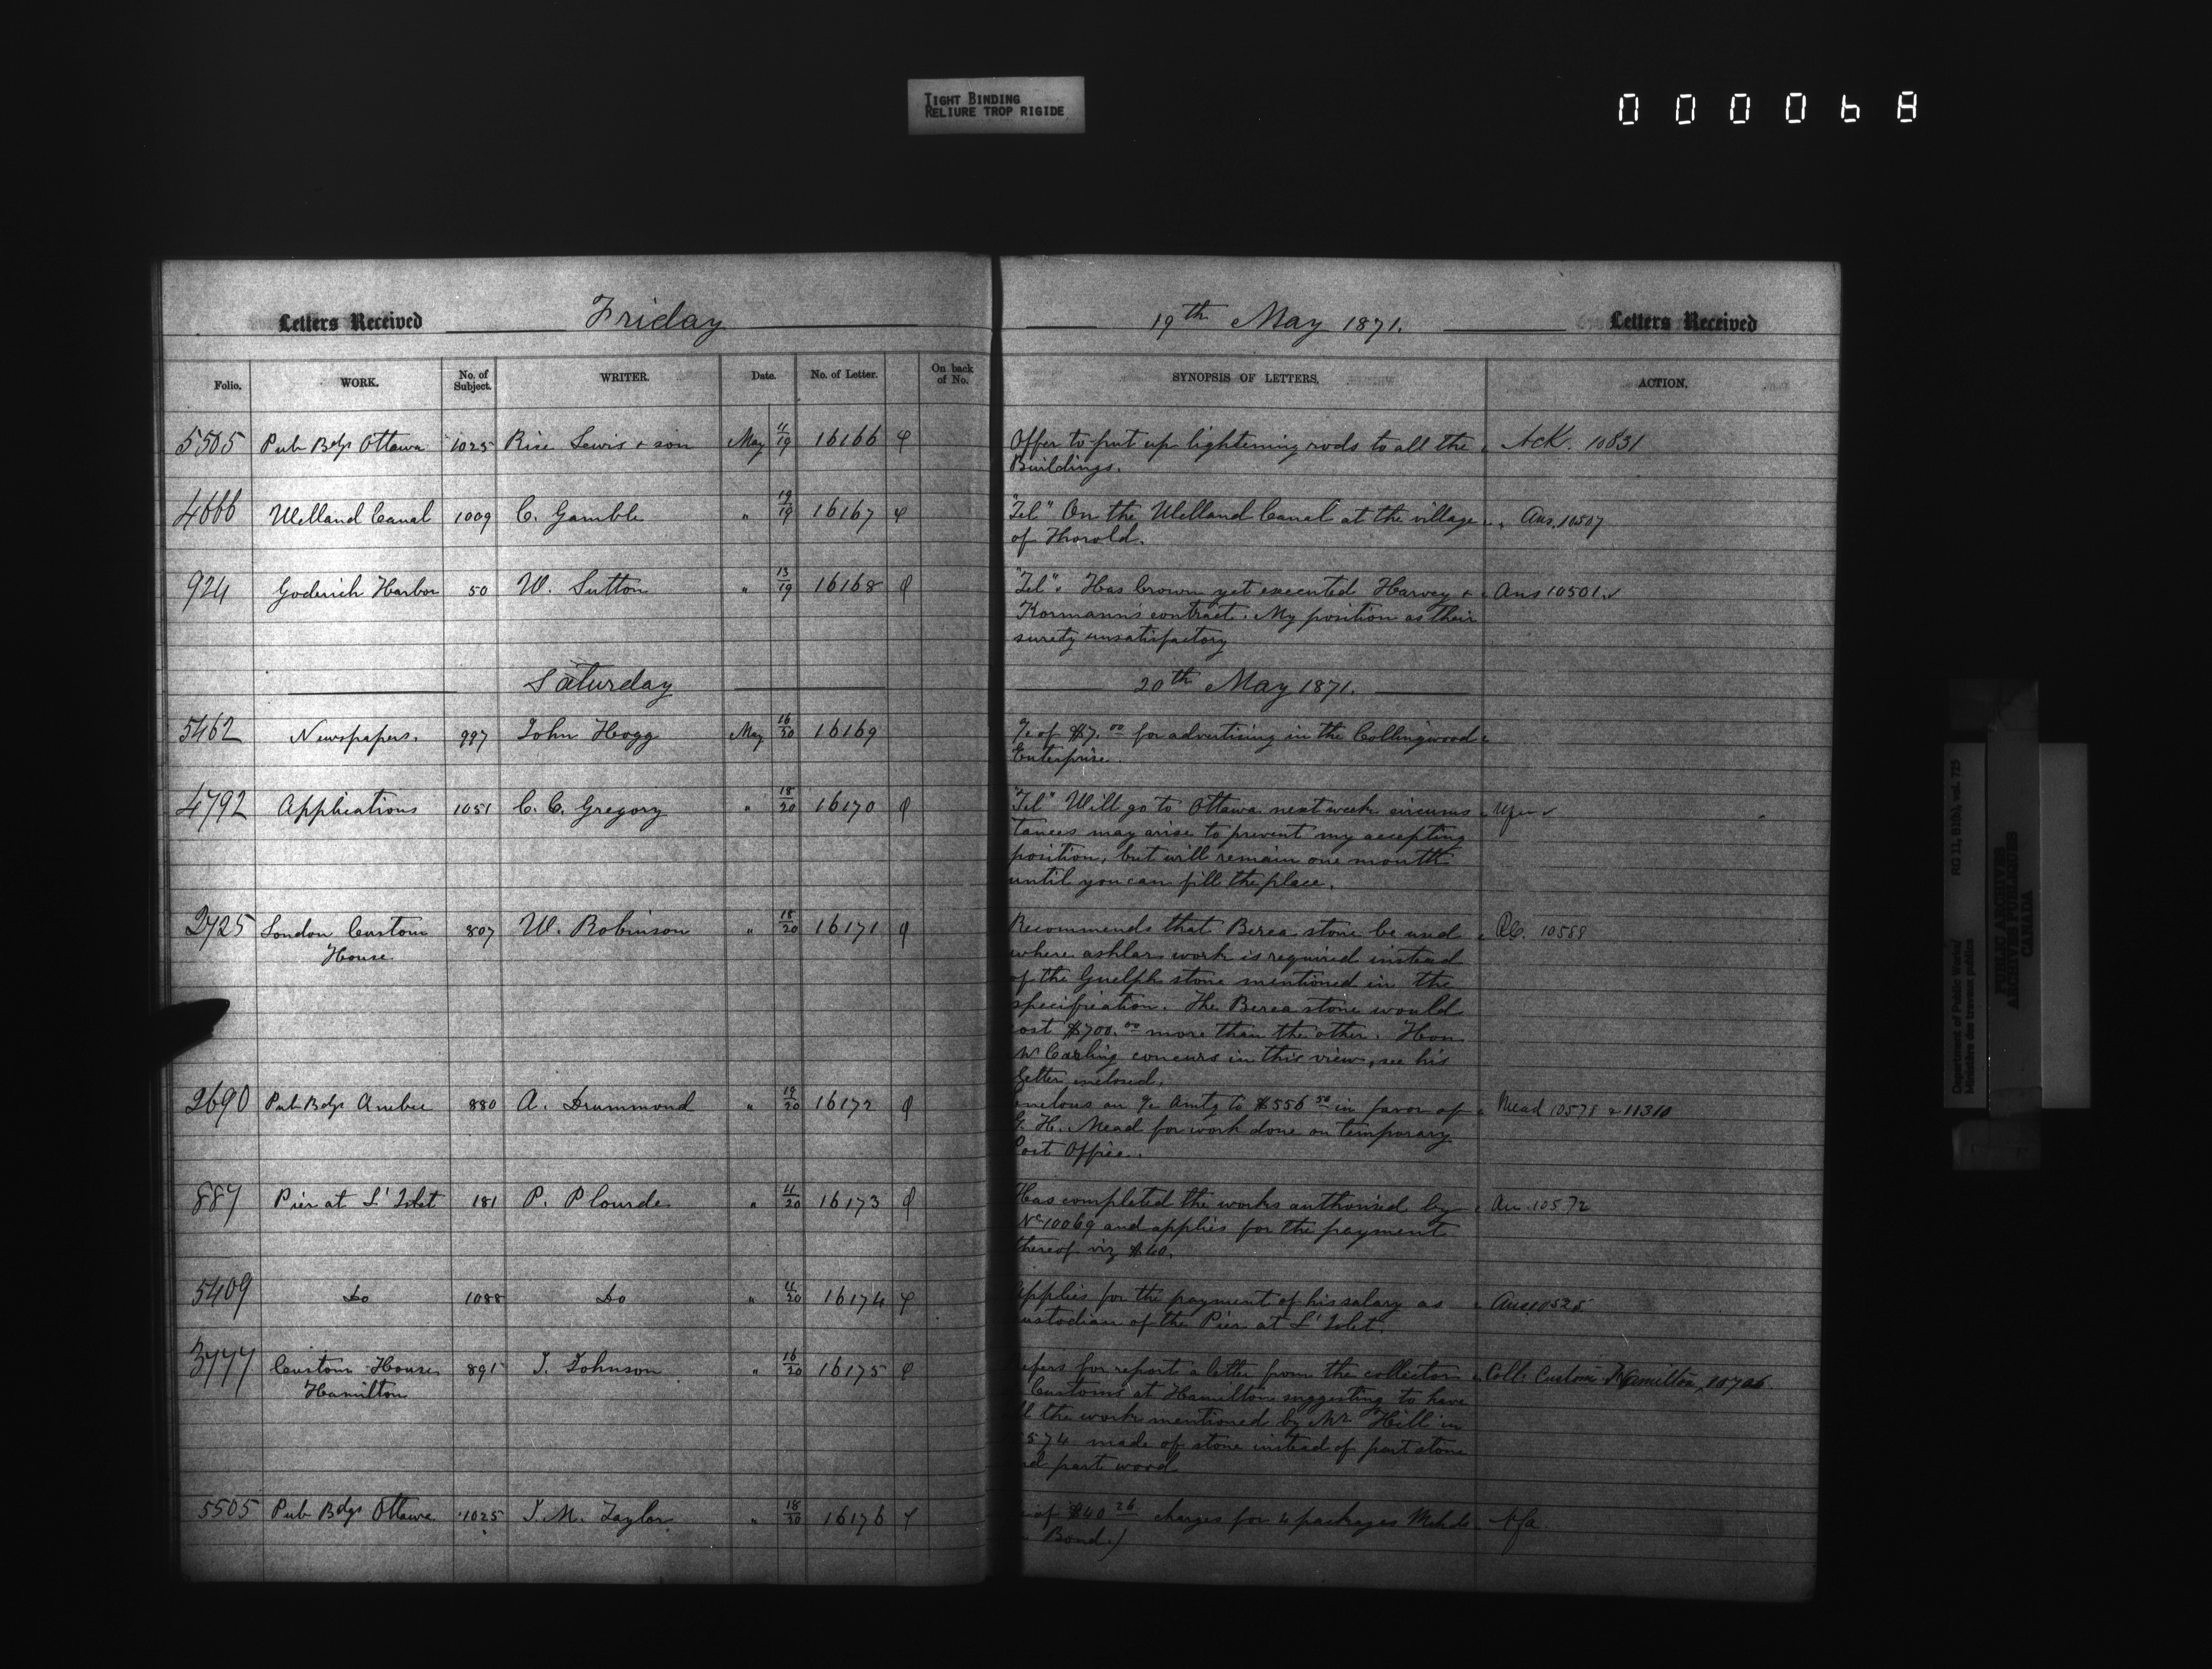 TIGHT BINDING
RELIURE TROP RIGIDE
000068
Letters Received Friday 19th May 1871. Letters Received
Folio. WORK. No. of Subject. WRITER. Date. No. of Letter. On back of No. SYNOPSIS OF LETTERS. ACTION.
5505 Pub Bdgs Ottawa 1025 Rice Lewis & son May 11/19 16166 Offer to put up lightening rods to all the Ack. 10831
Buildings.
4666 Welland Canal 1009 C. Gamble " 19/19 16167 "Tel" On the Welland Canal at the village Ans. 10507
of Thorold.
924 Goderich Harbor 50 W. Sutton " 13/19 16168 "Tel". Has Crown yet executed Harvey & Ans 10501
Kormann's contract. My position as their
surety unsatisfactory
Saturday 20th May 1871.
5462 Newspapers. 997 John Hogg May 16/20 16169 of $7.00 for advertising in the Collingwood
Enterprise.
4792 Applications 1051 C. C. Gregory " 18/20 16170 "Tel" Will go to Ottawa next week circums
tances may arise to prevent my accepting
position, but will remain one month
until you can fill the place.
2725 London Custom 807 W. Robinson " 18/20 16171 Recommends that Berea stone be used 10588
House where ashlar work is required instead
of the Guelph stone mentioned in the
specification. The Berea stone would
cost $700.00 more than the other. Hon
Mr Carling concurs in this view, see his
letter enclosed.
2690 Pub Bdgs Quebec 880 A. Drummond " 19/20 16172 an amtg to $556 50 in favor of Mead 10578 & 11310
G. H. Mead for work done on temporary
Post Office.
887 Pier at L'Islet 181 P. Plourde " 11/20 16173 Has completed the works authorised by 10572
No 10069 and applies for the payment
thereof viz $40.
5409 Do 1088 Do " 11/20 16174 Applies for the payment of his salary as Ans 10525
custodian of the Pier at L'Islet.
3777 Custom House 891 J. Johnson " 16/20 16175 Refers for report a letter from the collector Coll. Customs Hamilton 10706
Hamilton Customs at Hamilton suggesting to have
all the work mentioned by Mr Hill in
574 made of stone instead of part stone
and part wood
5505 Pub Bdgs Ottawa 1025 J. M. Taylor " 18/20 16176 of $40 26 charges for 4 packages
Bond)
Department of Public Works/ RG 11, B1(b), vol. 725
Ministère des travaux publics
PUBLIC ARCHIVES
ARCHIVES PUBLIQUES
CANADA